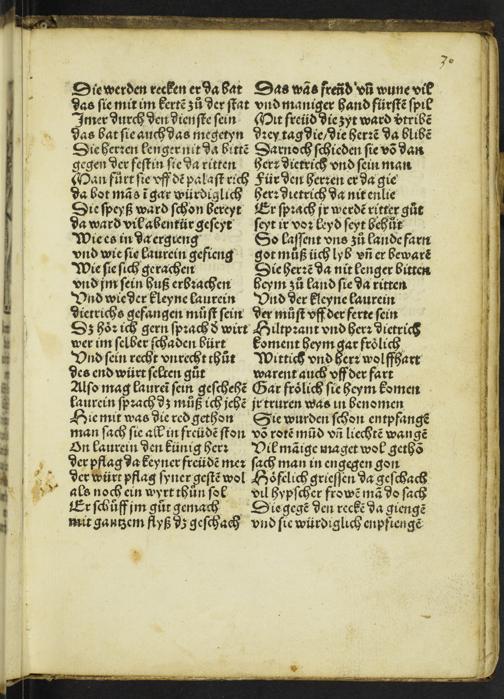 30
Die werden recken er da bat
das sie mit im kertē zů der stat
Jmer durch den dienste sein
das bat sie auch das megetyn
Die herren lenger nit da bittē
gegen der festin sie da ritten
Man fůrt sie vff dē palast rich
da bot mā s ī gar würdiglich
Die speyß ward schon bereyt
da ward vil abentür geseyt
Wie es in da ergieng
vnd wie sie laurein gefieng
Wie sie sich gerachen
vnd jm sein huß erbrachen
Vnd wie der kleyne laurein
dietrichs gefangen můst sein
Dz hör ich gern sprach d̄ wirt
wer im selber schaden birt
Vnd sein recht vnrecht thůt
des end würt selten gůt
Also mag laurei sein geschehē
laurein sprach dz můß ich jehē
Hie mit was die red gethon
man sach sie all in freüdē ston
On laurein den künig herr
der pflag da keyner freüdē mer
der würt pflag syner gestē wol
als noch ein wyrt thůn sol
Er schůff jm gůt gemach
mit gantzem flyß dz geschach
Das was freüd vn̄ wune vil
vnd maniger hand fürstē spil
Mit freüd die zyt ward v̄tribē
drey tag die/die herrē da blibē
Darnoch schieden sie vō dan
herr dietrich vnd sein man
Für den herren er da gie
herr dietrich da nit enlie
Er sprach jr werdē ritter gůt
seyt ir vor leyd seyt behůt
So lassent vns zů lande farn
got můß üch lyb vn̄ er bewarē
Die herrē da nit lenger bitten
heym zů land sie da ritten
Vnd der kleyne laurein
der můst vff der ferte sein
Hiltprant vnd herr dietrich
koment heym gar frölich
Wittich vnd herr wolffhart
warent auch vff der fart
Gar frölich sie heym komen
jr truren was in benomen
Sie wurden schon entpfangē
vō rotē mūd vn̄ liechtē wangē
Vil māige maget wol gethō
sach man in engegen gon
Höfelich griessen da geschach
vil hypscher frowē mā do sach
Die gegē den reckē da giengē
vnd sie würdiglich enpfiengē